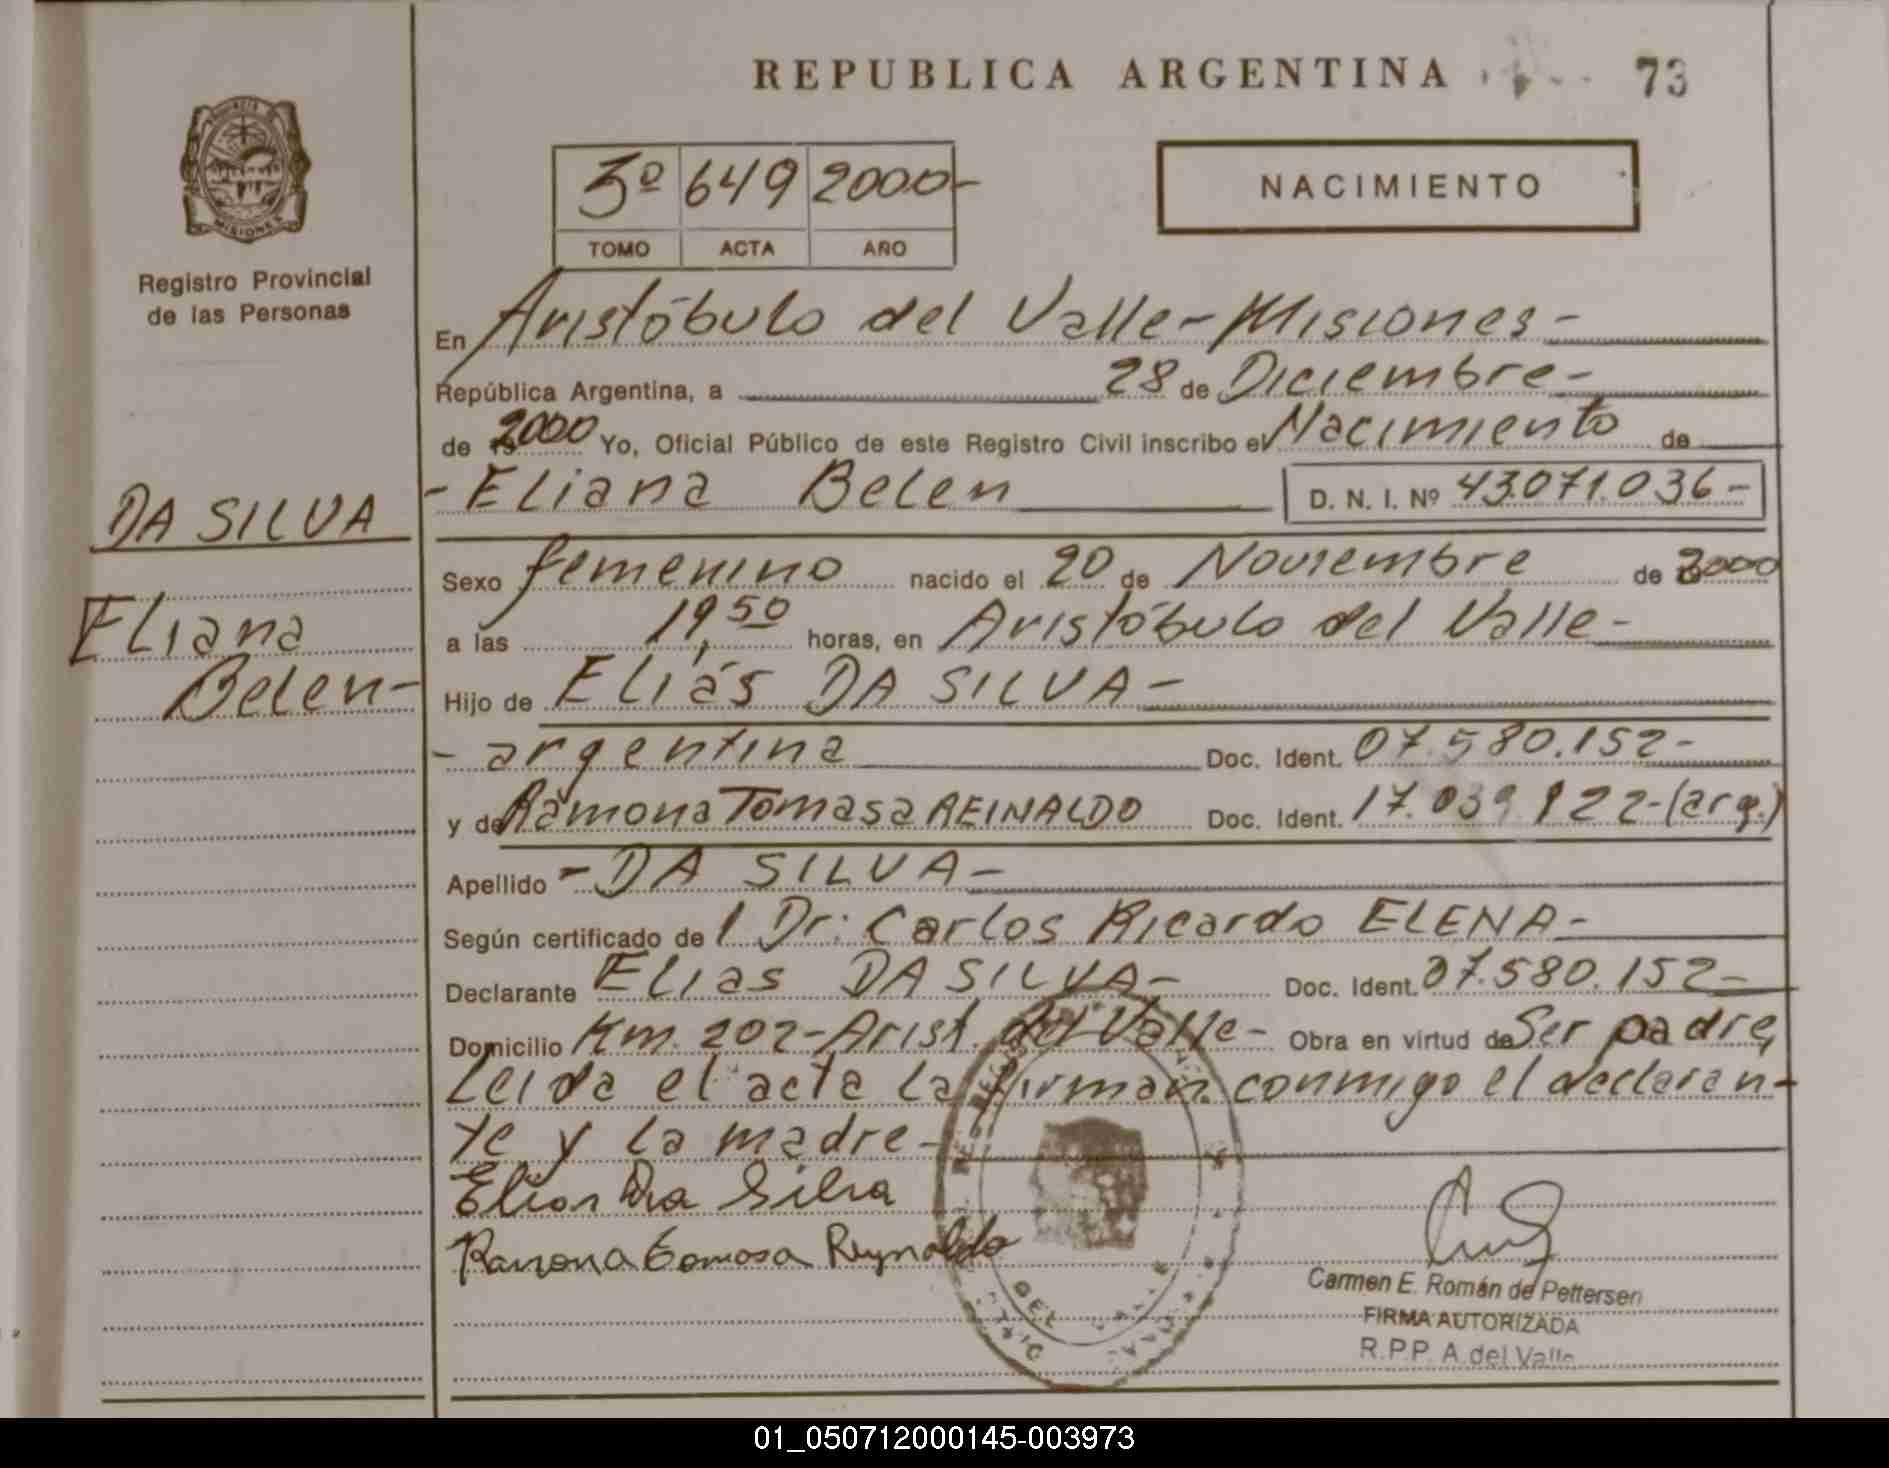 REPUBLICA ARGENTINA
73
MISIONES
Registro Provincial
de las Personas
3º 649 2000-
TOMO ACTA AÑO
NACIMIENTO
En Aristóbulo del Valle-Misiones-
República Argentina, a 28 de Diciembre-
de 2000 Yo, Oficial Público de este Registro Civil inscribo el Nacimiento de
-Eliana Belen D. N. I. Nº 43.071.036-
DA SILVA
Eliana
Belen-
Sexo femenino nacido el 20 de Noviembre de 2000
a las 19,50 horas, en Aristóbulo del Valle-
Hijo de Eliás DA SILVA-
-argentina Doc. Ident. 07.580.152-
y de Ramona Tomasa REINALDO Doc. Ident. 17.039.122-(arg.)
Apellido -DA SILVA-
Según certificado de l Dr: Carlos Ricardo ELENA-
Declarante Elias DA SILVA- Doc. Ident. 07.580.152-
Domicilio Km. 202-Arist. del Valle- Obra en virtud de Ser padre,
Leida el acta la firman conmigo el declaran-
te y la madre-
Elias Da Silva
Ramona Tomasa Reynaldo
Carmen E. Román de Pettersen
FIRMA AUTORIZADA
R.P.P. A.del Valle
01_050712000145-003973